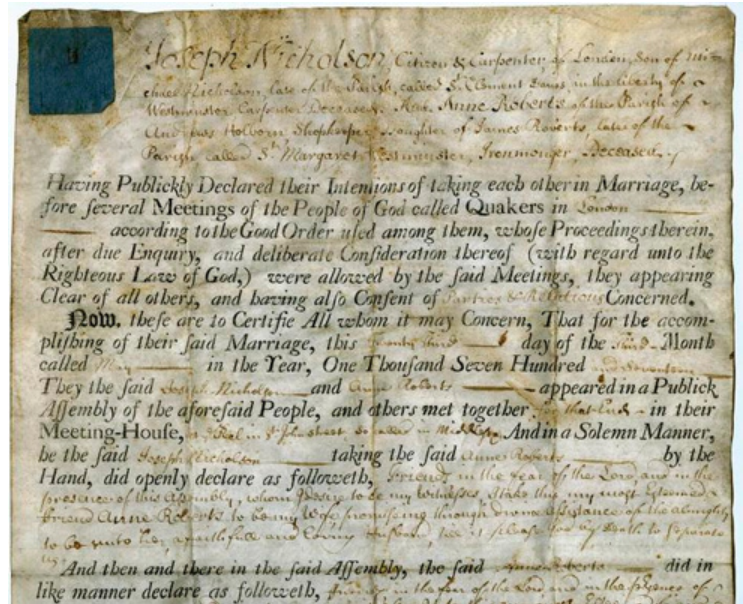 Joseph Nicholson Citizen & Carpenter of London, Son of Mi-
chael Nicholson, late of the Parish, called St. Clement Danes, in the liberty of
Westminster Carpenter Deceased. And Anne Roberts of the Parish of
Andrews Holborn Shopkeeper Daughter of James Roberts, late of the
Parish called St. Margaret Westminster, Ironmonger Deceased.
Having Publickly Declared their Intentions of taking each other in Marriage, be-
fore ſeveral Meetings of the People of God called Quakers in London
according to the Good Order uſed among them, whoſe Proceedings therein,
after due Enquiry, and deliberate Conſideration thereof (with regard unto the
Righteous Law of God,) were allowed by the ſaid Meetings, they appearing
Clear of all others, and having alſo Conſent of Parties & Relations Concerned.
Now, theſe are to Certifie All whom it may Concern, That for the accom-
pliſhing of their ſaid Marriage, this twenty third day of the Third Month
called May in the Year, One Thouſand Seven Hundred and Seventeen
They the ſaid Joseph Nicholson and Anne Roberts appeared in a Publick
Aſſembly of the aforeſaid People, and others met together for that End in their
Meeting-Houſe, at ye Peel in St. John Street so called in Middlesex And in a Solemn Manner,
he the ſaid Joseph Nicholson taking the ſaid Anne Roberts by the
Hand, did openly declare as followeth, Friends in the fear of the Lord, and in the
presence of this Assembly, whom I desire to be my Witnesses, I take this my most Esteemed
friend Anne Roberts to be my Wife promising through divine assistance of the almighty
to be unto her a faithfull and Loving Husband, till it please God by Death to separate
us
And then and there in the ſaid Aſſembly, the ſaid Anne Roberts did in
like manner declare as followeth, Friends in the fear of the Lord, and in the presence of